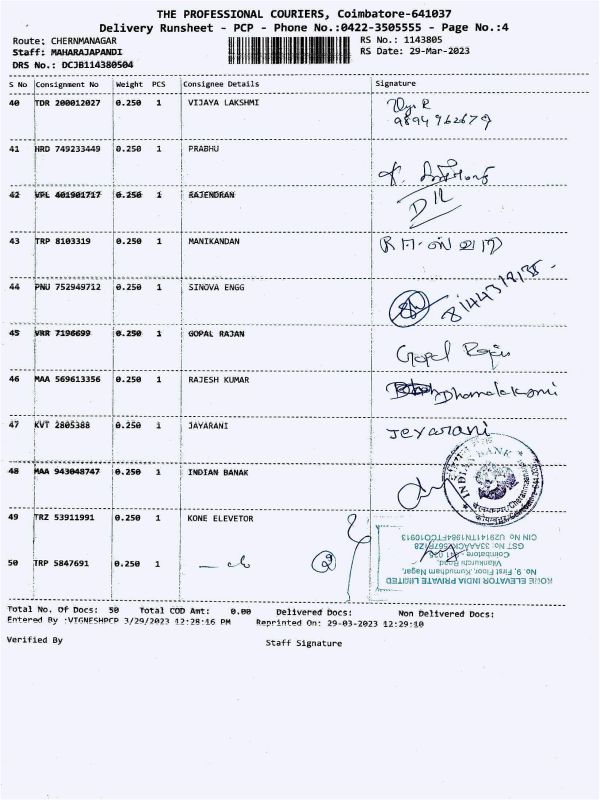 THE PROFESSIONAL COURIERS, Coimbatore-641037
Delivery Runsheet - PCP - Phone No.:0422-3505555 - Page No.:4
Route: CHERNMANAGAR
RS No.: 1143805
Staff: MAHARAJAPANDI
RS Date: 29-Mar-2023
DRS No.: DCJB114380504
S No Consignment No Weight PCS Consignee Details Signature
40 TDR 200012027 0.250 1 VIJAYA LAKSHMI
9894962679
41 HRD 749233449 0.250 1 PRABHU
42 VPL 401901717 0.250 1 RAJENDRAN
43 TRP 8103319 0.250 1 MANIKANDAN
44 PNU 752949712 0.250 1 SINOVA ENGG
45 VRR 7196699 0.250 1 GOPAL RAJAN
Gopal
46 MAA 569613356 0.250 1 RAJESH KUMAR
47 KVT 2805388 0.250 1 JAYARANI
Jeyarani
48 MAA 943048747 0.250 1 INDIAN BANAK
INDIAN BANK
49 TRZ 53911991 0.250 1 KONE ELEVETOR
50 TRP 5847691 0.250 1
KONE ELEVATOR INDIA PRIVATE LIMITED
No. 9, First Floor, Kumaran Nagar,
Vilankurichi Road,
Coimbatore
CIN No U29141TN1984FTC010913
Total No. Of Docs: 50 Total COD Amt: 0.00 Delivered Docs: Non Delivered Docs:
Entered By :VIGNESHPCP 3/29/2023 12:28:16 PM Reprinted On: 29-03-2023 12:29:10
Verified By Staff Signature